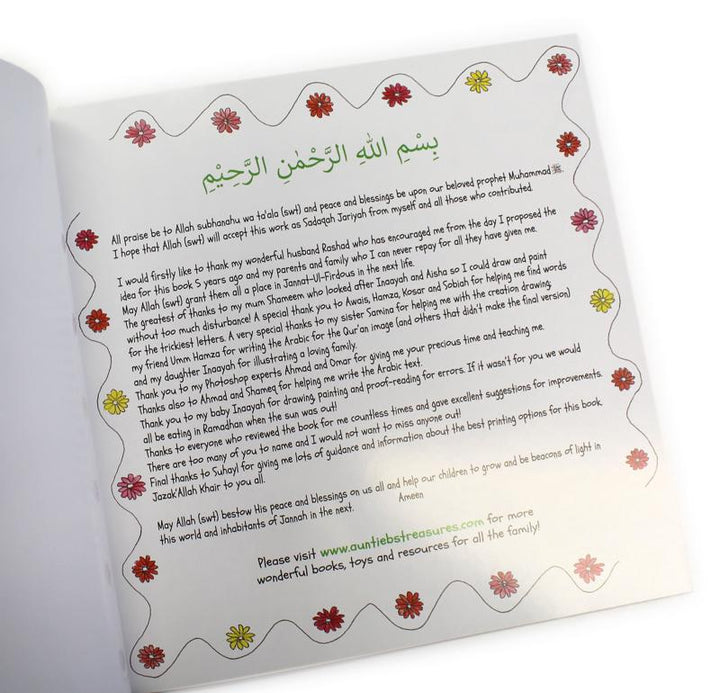 بِسْمِ اللهِ الرَّحْمٰنِ الرَّحِيْمِ
All praise be to Allah subhanahu wa ta'ala (swt) and peace and blessings be upon our beloved prophet Muhammad ﷺ.
I hope that Allah (swt) will accept this work as Sadaqah Jariyah from myself and all those who contributed.
I would firstly like to thank my wonderful husband Rashad who has encouraged me from the day I proposed the
idea for this book 5 years ago and my parents and family who I can never repay for all they have given me.
May Allah (swt) grant them all a place in Jannat-Ul-Firdous in the next life.
The greatest of thanks to my mum Shameem who looked after Inaayah and Aisha so I could draw and paint
without too much disturbance! A special thank you to Awais, Hamza, Kosar and Sobiah for helping me find words
for the trickiest letters. A very special thanks to my sister Samina for helping with the creation drawing,
my friend Umm Hamza for writing the Arabic for the Qur'an image (and others that didn't make the final version)
and my daughter Inaayah for illustrating a loving family.
Thank you to my Photoshop experts Ahmad and Omar for giving me your precious time and teaching me.
Thanks also to Ahmad and Shameq for helping me write the Arabic text.
Thank you to my baby Inaayah for drawing, painting and proof-reading for errors. If it wasn't for you we would
all be eating in Ramadhan when the sun was out!
Thanks to everyone who reviewed the book for me countless times and gave excellent suggestions for improvements.
There are too many of you to name and I would not want to miss anyone out!
Final thanks to Suhayl for giving me lots of guidance and information about the best printing options for this book.
Jazak'Allah Khair to you all.
May Allah (swt) bestow His peace and blessings on us all and help our children to grow and be beacons of light in
this world and inhabitants of Jannah in the next. Ameen
Please visit www.auntiebstreasures.com for more
wonderful books, toys and resources for all the family!